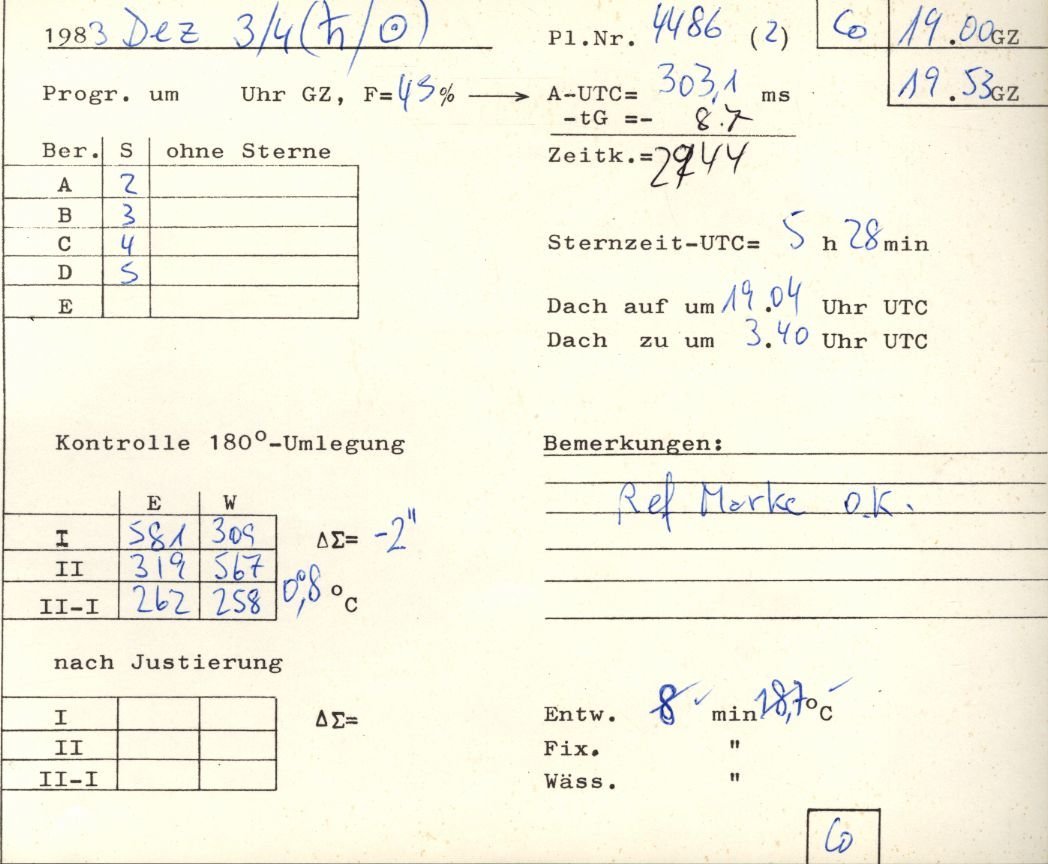 1983 Dez 3/4 (ħ/☉) Pl.Nr. 4486 (2) Co 19.00GZ
19.53GZ
Progr. um Uhr GZ, F=45% ⟶ A-UTC= 303,1 ms
-tG =- 8.7
Zeitk.=
Ber. S ohne Sterne
A 2
B 3
C 4
D 5
E
Sternzeit-UTC= 5 h 28min
Dach auf um 19.04 Uhr UTC
Dach zu um 3.40 Uhr UTC
Kontrolle 180°-Umlegung
E W
I 581 309 ΔΣ= -2"
II 319 567
II-I 262 258 0,8 °C
Bemerkungen:
Ref Marke o.K.
nach Justierung
I ΔΣ=
II
II-I
Entw. 8 min 18,7°C
Fix. "
Wäss. "
Co